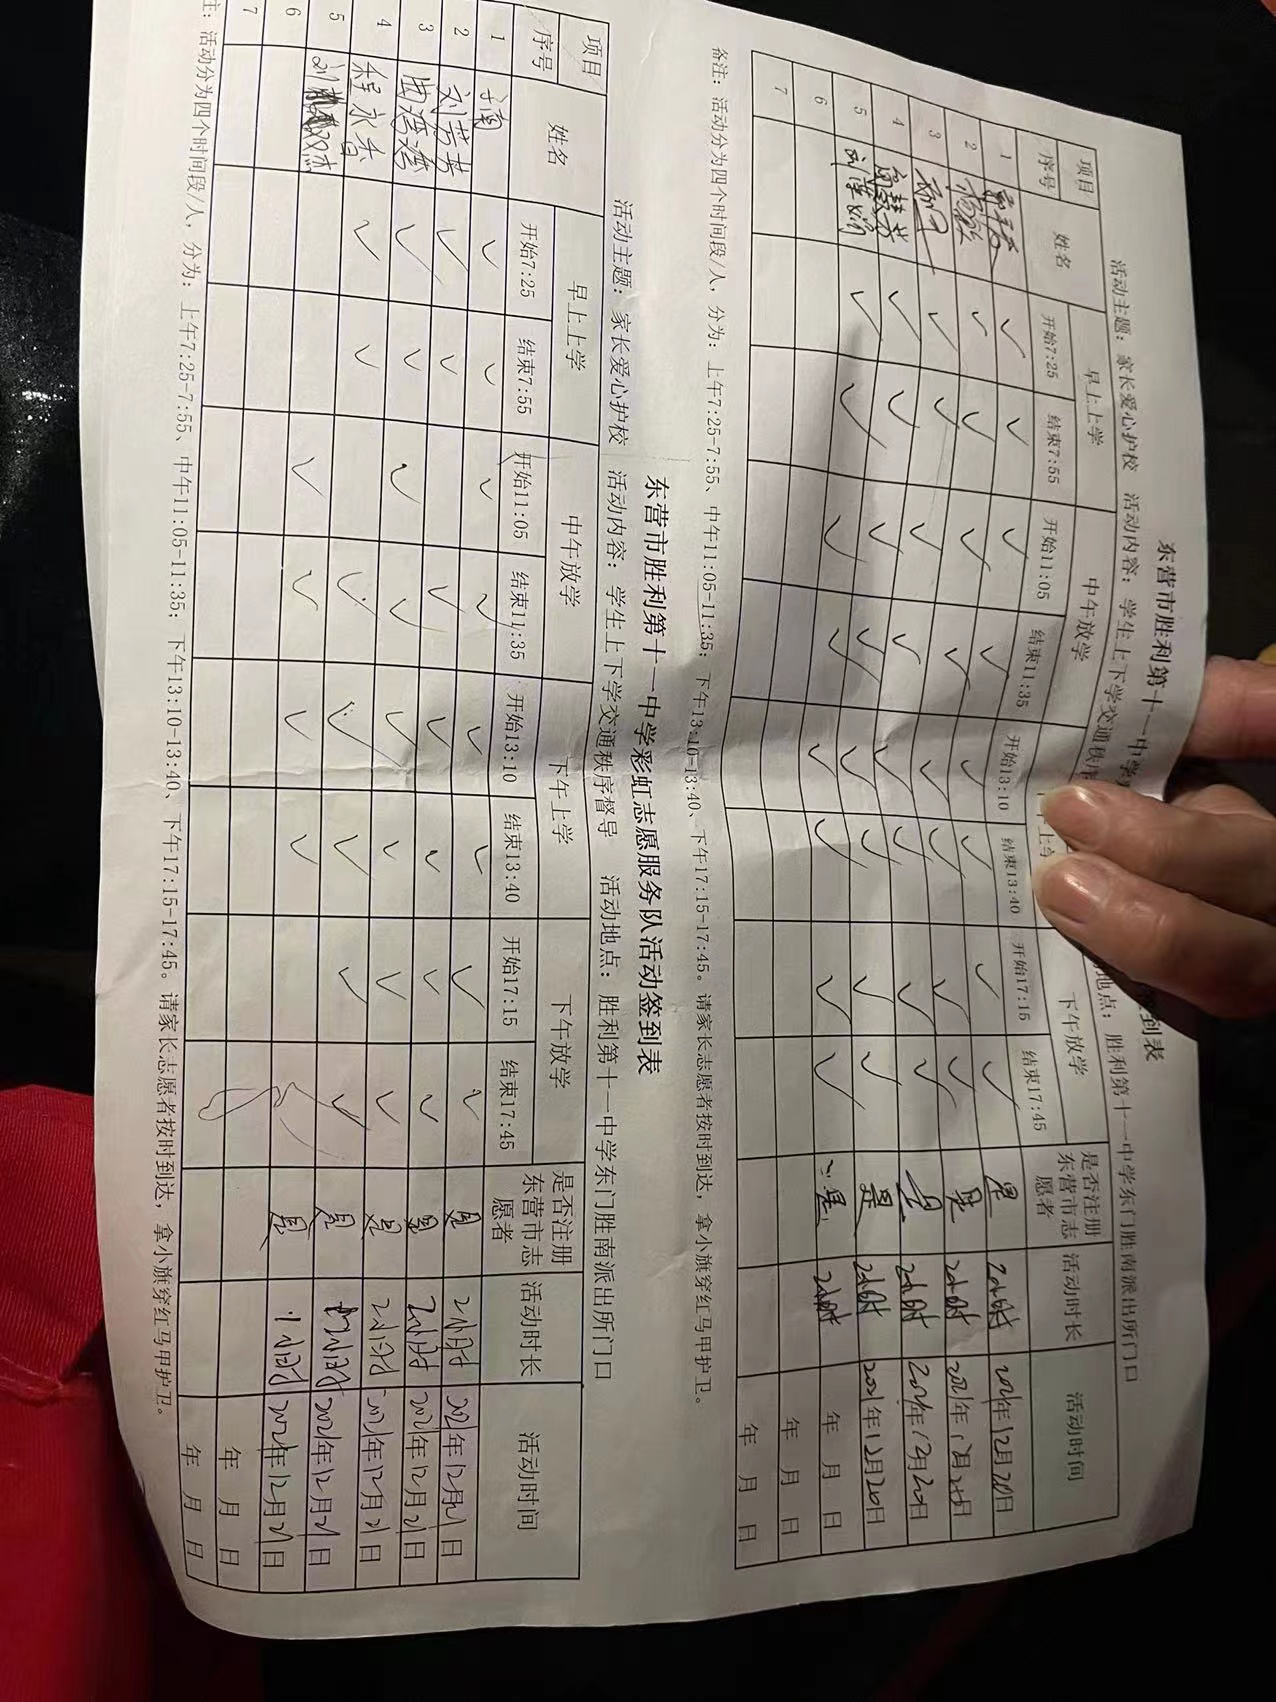 东营市胜利第十一中学
签到表
活动主题：家长爱心护校 活动内容：学生上下学交通秩序 地点：胜利第十一中学东门胜南派出所门口
项目 姓名 早上上学 中午放学 下午上学 下午放学 是否注册东营市志愿者 活动时长 活动时间
序号 开始7:25 结束7:55 开始11:05 结束11:35 开始13:10 结束13:40 开始17:15 结束17:45
1 ✓ ✓ ✓ ✓ ✓ ✓ ✓ ✓ 是 2小时 2021年12月20日
2 ✓ ✓ ✓ ✓ ✓ ✓ ✓ ✓ 是 2小时 2021年12月20日
3 ✓ ✓ ✓ ✓ ✓ ✓ ✓ ✓ 是 2小时 2021年12月20日
4 ✓ ✓ ✓ ✓ ✓ ✓ ✓ ✓ 是 2小时 2021年12月20日
5 ✓ ✓ ✓ ✓ ✓ ✓ ✓ ✓ 是 2小时 年 月 日
6 年 月 日
7 年 月 日
备注：活动分为四个时间段/人，分为：上午7:25-7:55、中午11:05-11:35；下午13:10-13:40、下午17:15-17:45。请家长志愿者按时到达，拿小旗穿红马甲护卫。
东营市胜利第十一中学彩虹志愿服务队活动签到表
活动主题：家长爱心护校 活动内容：学生上下学交通秩序督导 活动地点：胜利第十一中学东门胜南派出所门口
项目 姓名 早上上学 中午放学 下午上学 下午放学 是否注册东营市志愿者 活动时长 活动时间
序号 开始7:25 结束7:55 开始11:05 结束11:35 开始13:10 结束13:40 开始17:15 结束17:45
1 ✓ ✓ ✓ ✓ ✓ ✓ ✓ ✓ 是 2小时 2021年12月21日
2 刘芳芳 ✓ ✓ ✓ ✓ ✓ ✓ ✓ 是 2小时 2021年12月21日
3 ✓ ✓ ✓ ✓ ✓ ✓ ✓ ✓ 是 2小时 2021年12月21日
4 程永香 ✓ ✓ ✓ ✓ ✓ ✓ ✓ 是 小时 2021年12月21日
5 ✓ ✓ ✓ ✓ 是 1小时 2021年12月21日
6 年 月 日
7 年 月 日
注：活动分为四个时间段/人，分为：上午7:25-7:55、中午11:05-11:35；下午13:10-13:40、下午17:15-17:45。请家长志愿者按时到达，拿小旗穿红马甲护卫。